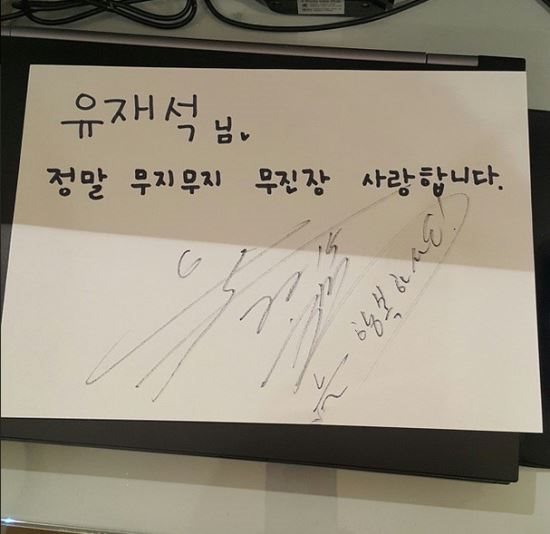 유재석님♥
정말 무지무지 무진장 사랑합니다.
늘 행복하세요!